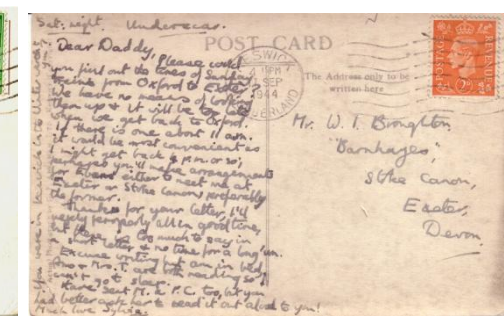 Sat. night. Underscar.
POST CARD
Dear Daddy, Please could
you find out the times of Sunday
trains from Oxford to Exeter?
We have no means of looking
them up & it will be too late
when we get back to Oxford.
If there is one about 11 a.m.
it would be most convenient as
I might get back 4 p.m. or so;
perhaps you'll make arrangements
for Evans either to meet me at
Exeter or Stoke Canon, preferably
the former.
Thanks for your letter, I'll
reply properly all in good time,
but there is too much to say in
a short letter & no time for a long 'un.
Excuse writing but am in bed,
& Mrs. T. are both reading so I
can't go to sleep.
Have sent M. a P.C. too, but you
had better ask her to read it out aloud to you!
Much love Sylvia.
KESWICK
SEP
1944
CUMBERLAND
The Address only to be
written here
Mr. W. I. Broughton
"Barnhayes",
Stoke Canon,
Exeter,
Devon.
POSTAGE
REVENUE